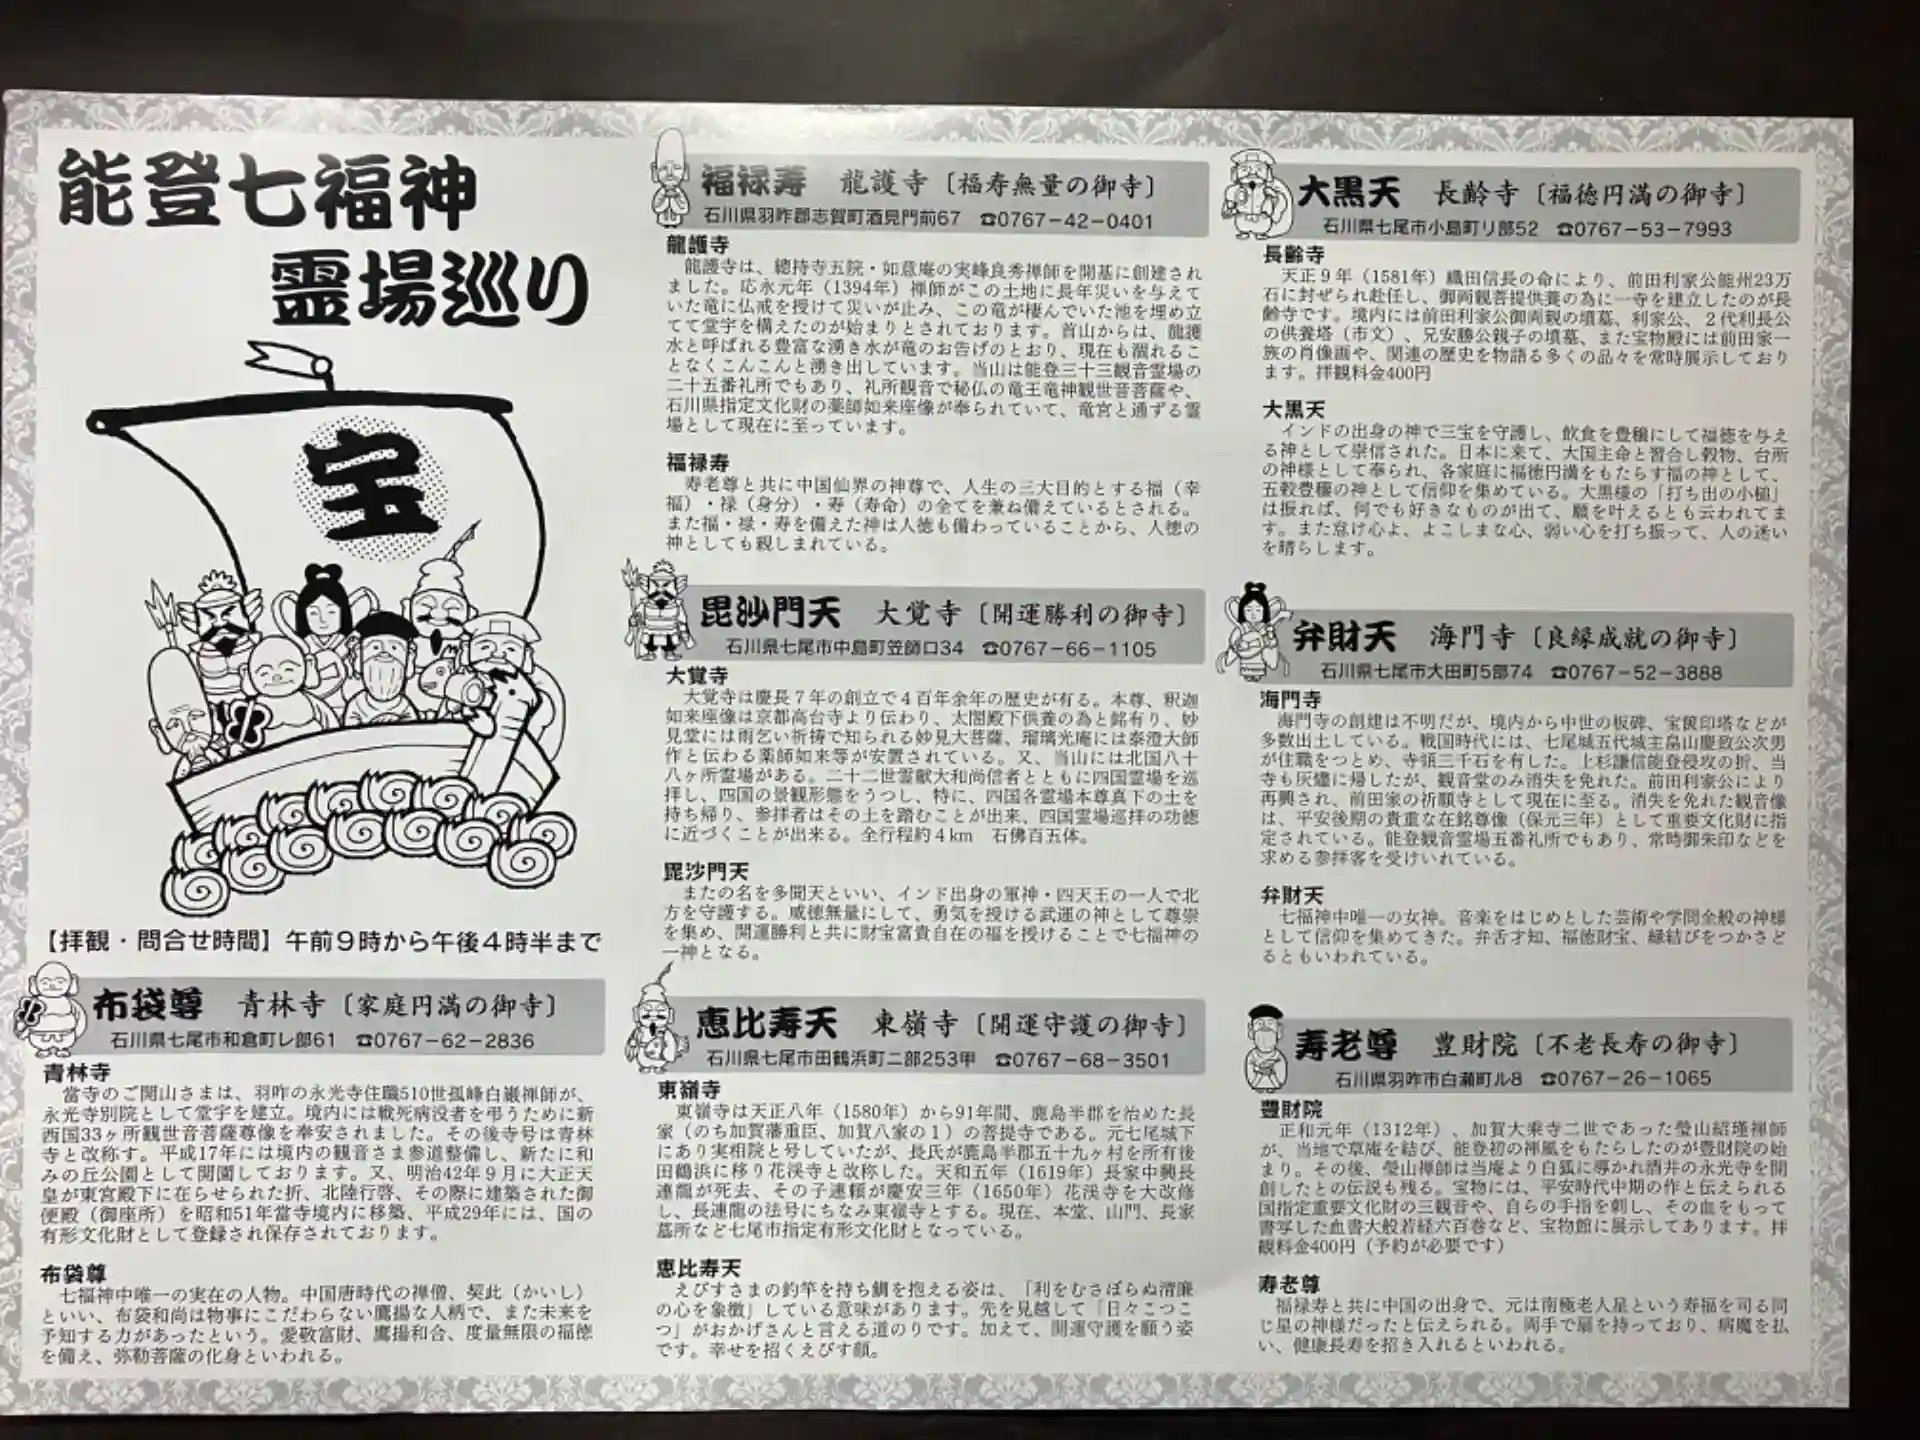 能登七福神
霊場巡り
宝
【拝観・問合せ時間】午前9時から午後4時半まで
布袋尊 青林寺〔家庭円満の御寺〕
石川県七尾市和倉町レ部61 ☎0767-62-2836
青林寺
當寺のご開山さまは、羽咋の永光寺住職510世孤峰白巌禅師が、
永光寺別院として堂宇を建立。境内には戦死病没者を弔うために新
西国33ヶ所観世音菩薩尊像を奉安されました。その後寺号は青林
寺と改称す。平成17年には境内の観音さま参道整備し、新たに和
みの丘公園として開園しております。又、明治42年9月に大正天
皇が東宮殿下に在らせられた折、北陸行啓、その際に建築された御
便殿（御座所）を昭和51年當寺境内に移築、平成29年には、国の
有形文化財として登録され保存されております。
布袋尊
七福神中唯一の実在の人物。中国唐時代の禅僧、契此（かいし）
といい、布袋和尚は物事にこだわらない鷹揚な人柄で、また未来を
予知する力があったという。愛敬富財、鷹揚和合、度量無限の福徳
を備え、弥勒菩薩の化身といわれる。
福禄寿 龍護寺〔福寿無量の御寺〕
石川県羽咋郡志賀町酒見門前67 ☎0767-42-0401
龍護寺
龍護寺は、總持寺五院・如意庵の実峰良秀禅師を開基に創建され
ました。応永元年（1394年）禅師がこの土地に長年災いを与えて
いた竜に仏戒を授けて災いが止み、この竜が棲んでいた池を埋め立
てて堂宇を構えたのが始まりとされております。首山からは、龍護
水と呼ばれる豊富な湧き水が竜のお告げのとおり、現在も涸れるこ
となくこんこんと湧き出しています。当山は能登三十三観音霊場の
二十五番礼所でもあり、礼所観音で秘仏の竜王竜神観世音菩薩や、
石川県指定文化財の薬師如来座像が奉られていて、竜宮と通ずる霊
場として現在に至っています。
福禄寿
寿老尊と共に中国仙界の神尊で、人生の三大目的とする福（幸
福）・禄（身分）・寿（寿命）の全てを兼ね備えているとされる。
また福・禄・寿を備えた神は人徳も備わっていることから、人徳の
神としても親しまれている。
毘沙門天 大覚寺〔開運勝利の御寺〕
石川県七尾市中島町笠師口34 ☎0767-66-1105
大覚寺
大覚寺は慶長7年の創立で4百年余年の歴史が有る。本尊、釈迦
如来座像は京都高台寺より伝わり、太閤殿下供養の為と銘有り、妙
見堂には雨乞い祈祷で知られる妙見大菩薩、瑠璃光庵には泰澄大師
作と伝わる薬師如来等が安置されている。又、当山には北国八十
八ヶ所霊場がある。二十二世霊献大和尚信者とともに四国霊場を巡
拝し、四国の景観形態をうつし、特に、四国各霊場本尊真下の土を
持ち帰り、参拝者はその土を踏むことが出来、四国霊場巡拝の功徳
に近づくことが出来る。全行程約4km 石佛百五体。
毘沙門天
またの名を多聞天といい、インド出身の軍神・四天王の一人で北
方を守護する。威徳無量にして、勇気を授ける武運の神として尊崇
を集め、開運勝利と共に財宝富貴自在の福を授けることで七福神の
一神となる。
恵比寿天 東嶺寺〔開運守護の御寺〕
石川県七尾市田鶴浜町二部253甲 ☎0767-68-3501
東嶺寺
東嶺寺は天正八年（1580年）から91年間、鹿島半郡を治めた長
家（のち加賀藩重臣、加賀八家の1）の菩提寺である。元七尾城下
にあり実相院と号していたが、長氏が鹿島半郡五十九ヶ村を所有後
田鶴浜に移り花渓寺と改称した。天和五年（1619年）長家中興長
連龍が死去、その子連頼が慶安三年（1650年）花渓寺を大改修
し、長連龍の法号にちなみ東嶺寺とする。現在、本堂、山門、長家
墓所など七尾市指定有形文化財となっている。
恵比寿天
えびすさまの釣竿を持ち鯛を抱える姿は、「利をむさぼらぬ清廉
の心を象徴」している意味があります。先を見越して「日々こつこ
つ」がおかげさんと言える道のりです。加えて、開運守護を願う姿
です。幸せを招くえびす顔。
大黒天 長齢寺〔福徳円満の御寺〕
石川県七尾市小島町リ部52 ☎0767-53-7993
長齢寺
天正9年（1581年）織田信長の命により、前田利家公能州23万
石に封ぜられ赴任し、御両観菩提供養の為に一寺を建立したのが長
齢寺です。境内には前田利家公御両親の墳墓、利家公、2代利長公
の供養塔（市文）、兄安勝公親子の墳墓、また宝物殿には前田家一
族の肖像画や、関連の歴史を物語る多くの品々を常時展示しており
ます。拝観料金400円
大黒天
インドの出身の神で三宝を守護し、飲食を豊穣にして福徳を与え
る神として崇信された。日本に来て、大国主命と習合し穀物、台所
の神様として奉られ、各家庭に福徳円満をもたらす福の神として、
五穀豊穣の神として信仰を集めている。大黒様の「打ち出の小槌」
は振れば、何でも好きなものが出て、願を叶えるとも云われてま
す。また怠け心よ、よこしまな心、弱い心を打ち振って、人の迷い
を晴らします。
弁財天 海門寺〔良縁成就の御寺〕
石川県七尾市大田町5部74 ☎0767-52-3888
海門寺
海門寺の創建は不明だが、境内から中世の板碑、宝篋印塔などが
多数出土している。戦国時代には、七尾城五代城主畠山慶致公次男
が住職をつとめ、寺領三千石を有した。上杉謙信能登侵攻の折、当
寺も灰燼に帰したが、観音堂のみ消失を免れた。前田利家公により
再興され、前田家の祈願寺として現在に至る。消失を免れた観音像
は、平安後期の貴重な在銘尊像（保元三年）として重要文化財に指
定されている。能登観音霊場五番礼所でもあり、常時御朱印などを
求める参拝客を受けいれている。
弁財天
七福神中唯一の女神。音楽をはじめとした芸術や学問全般の神様
として信仰を集めてきた。弁舌才知、福徳財宝、縁結びをつかさど
るともいわれている。
寿老尊 豊財院〔不老長寿の御寺〕
石川県羽咋市白瀬町ル8 ☎0767-26-1065
豊財院
正和元年（1312年）、加賀大乗寺二世であった瑩山紹瑾禅師
が、当地で草庵を結び、能登初の禅風をもたらしたのが豊財院の始
まり。その後、瑩山禅師は当庵より白狐に導かれ酒井の永光寺を開
創したとの伝説も残る。宝物には、平安時代中期の作と伝えられる
国指定重要文化財の三観音や、自らの手指を刺し、その血をもって
書写した血書大般若経六百巻など、宝物館に展示してあります。拝
観料金400円（予約が必要です）
寿老尊
福禄寿と共に中国の出身で、元は南極老人星という寿福を司る同
じ星の神様だったと伝えられる。両手で扇を持っており、病魔を払
い、健康長寿を招き入れるといわれる。